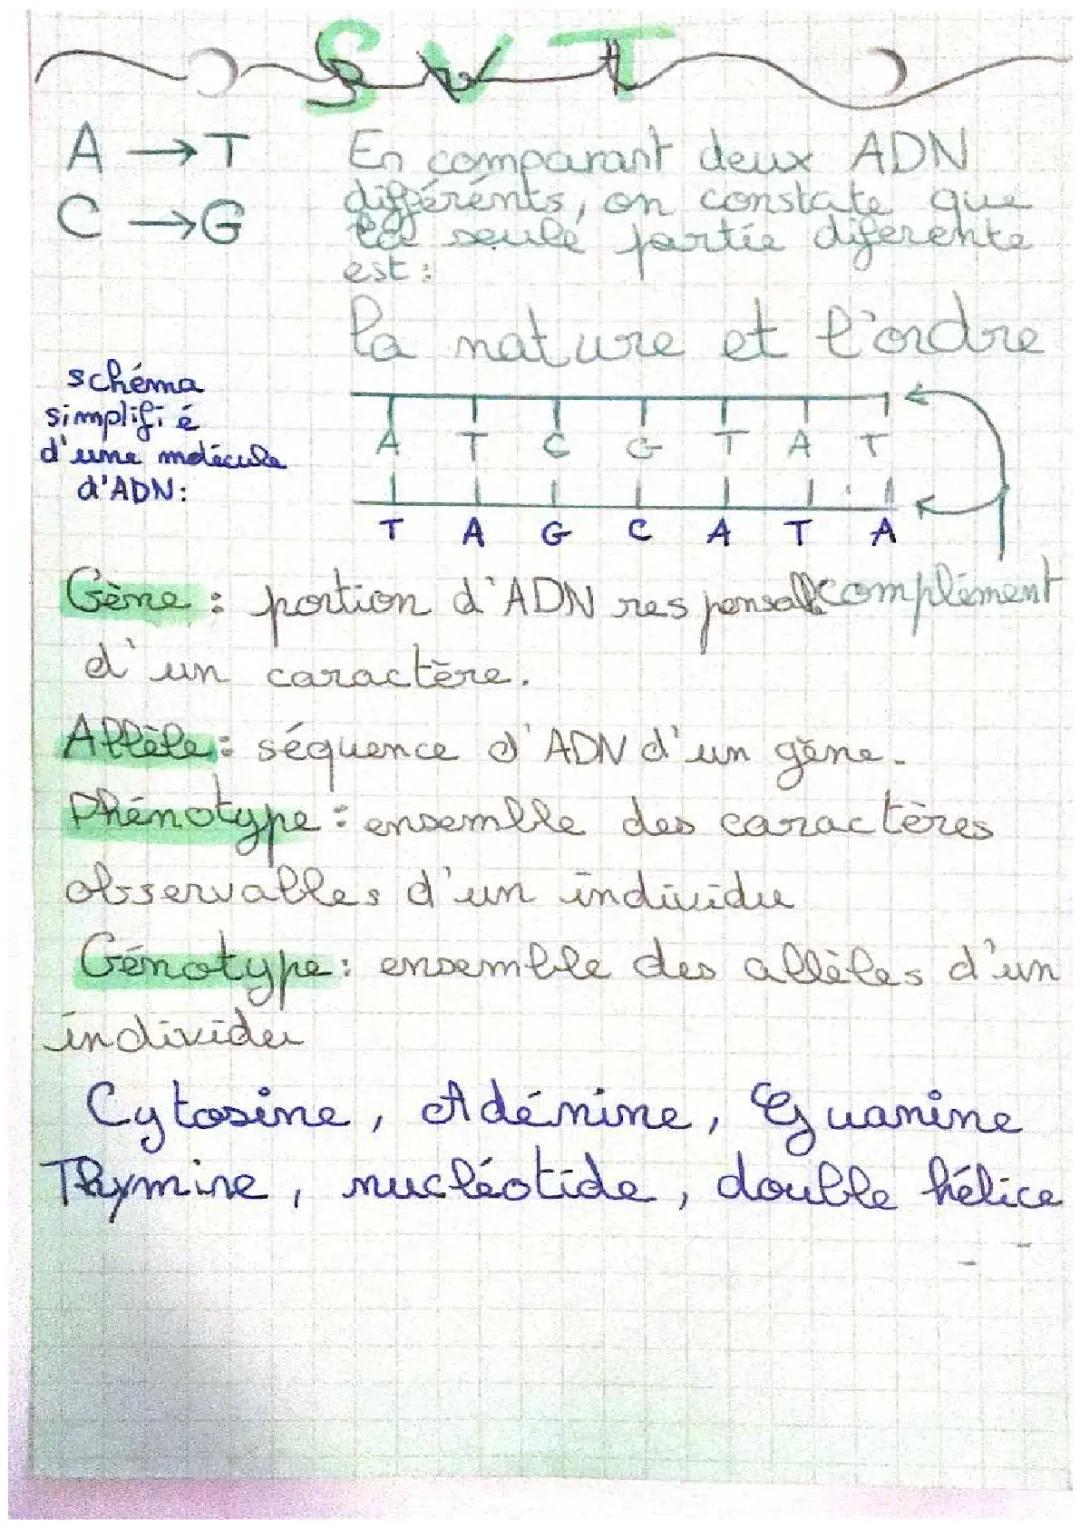 SVT
A → T
C → G
En comparant deux ADN
différents, on constate que
la seule partie diferente
est :
la nature et l'ordre
schéma
simplifié
d'une molécule
d'ADN:
A T C G T A T
T A G C A T A
complément
Gène : portion d'ADN responsable
d'un caractère.
Allèle : séquence d'ADN d'un gène.
Phénotype : ensemble des caractères
observables d'un individu
Génotype : ensemble des allèles d'un
individu
Cytosine, Adénine, Guanine
Thymine, nucléotide, double hélice